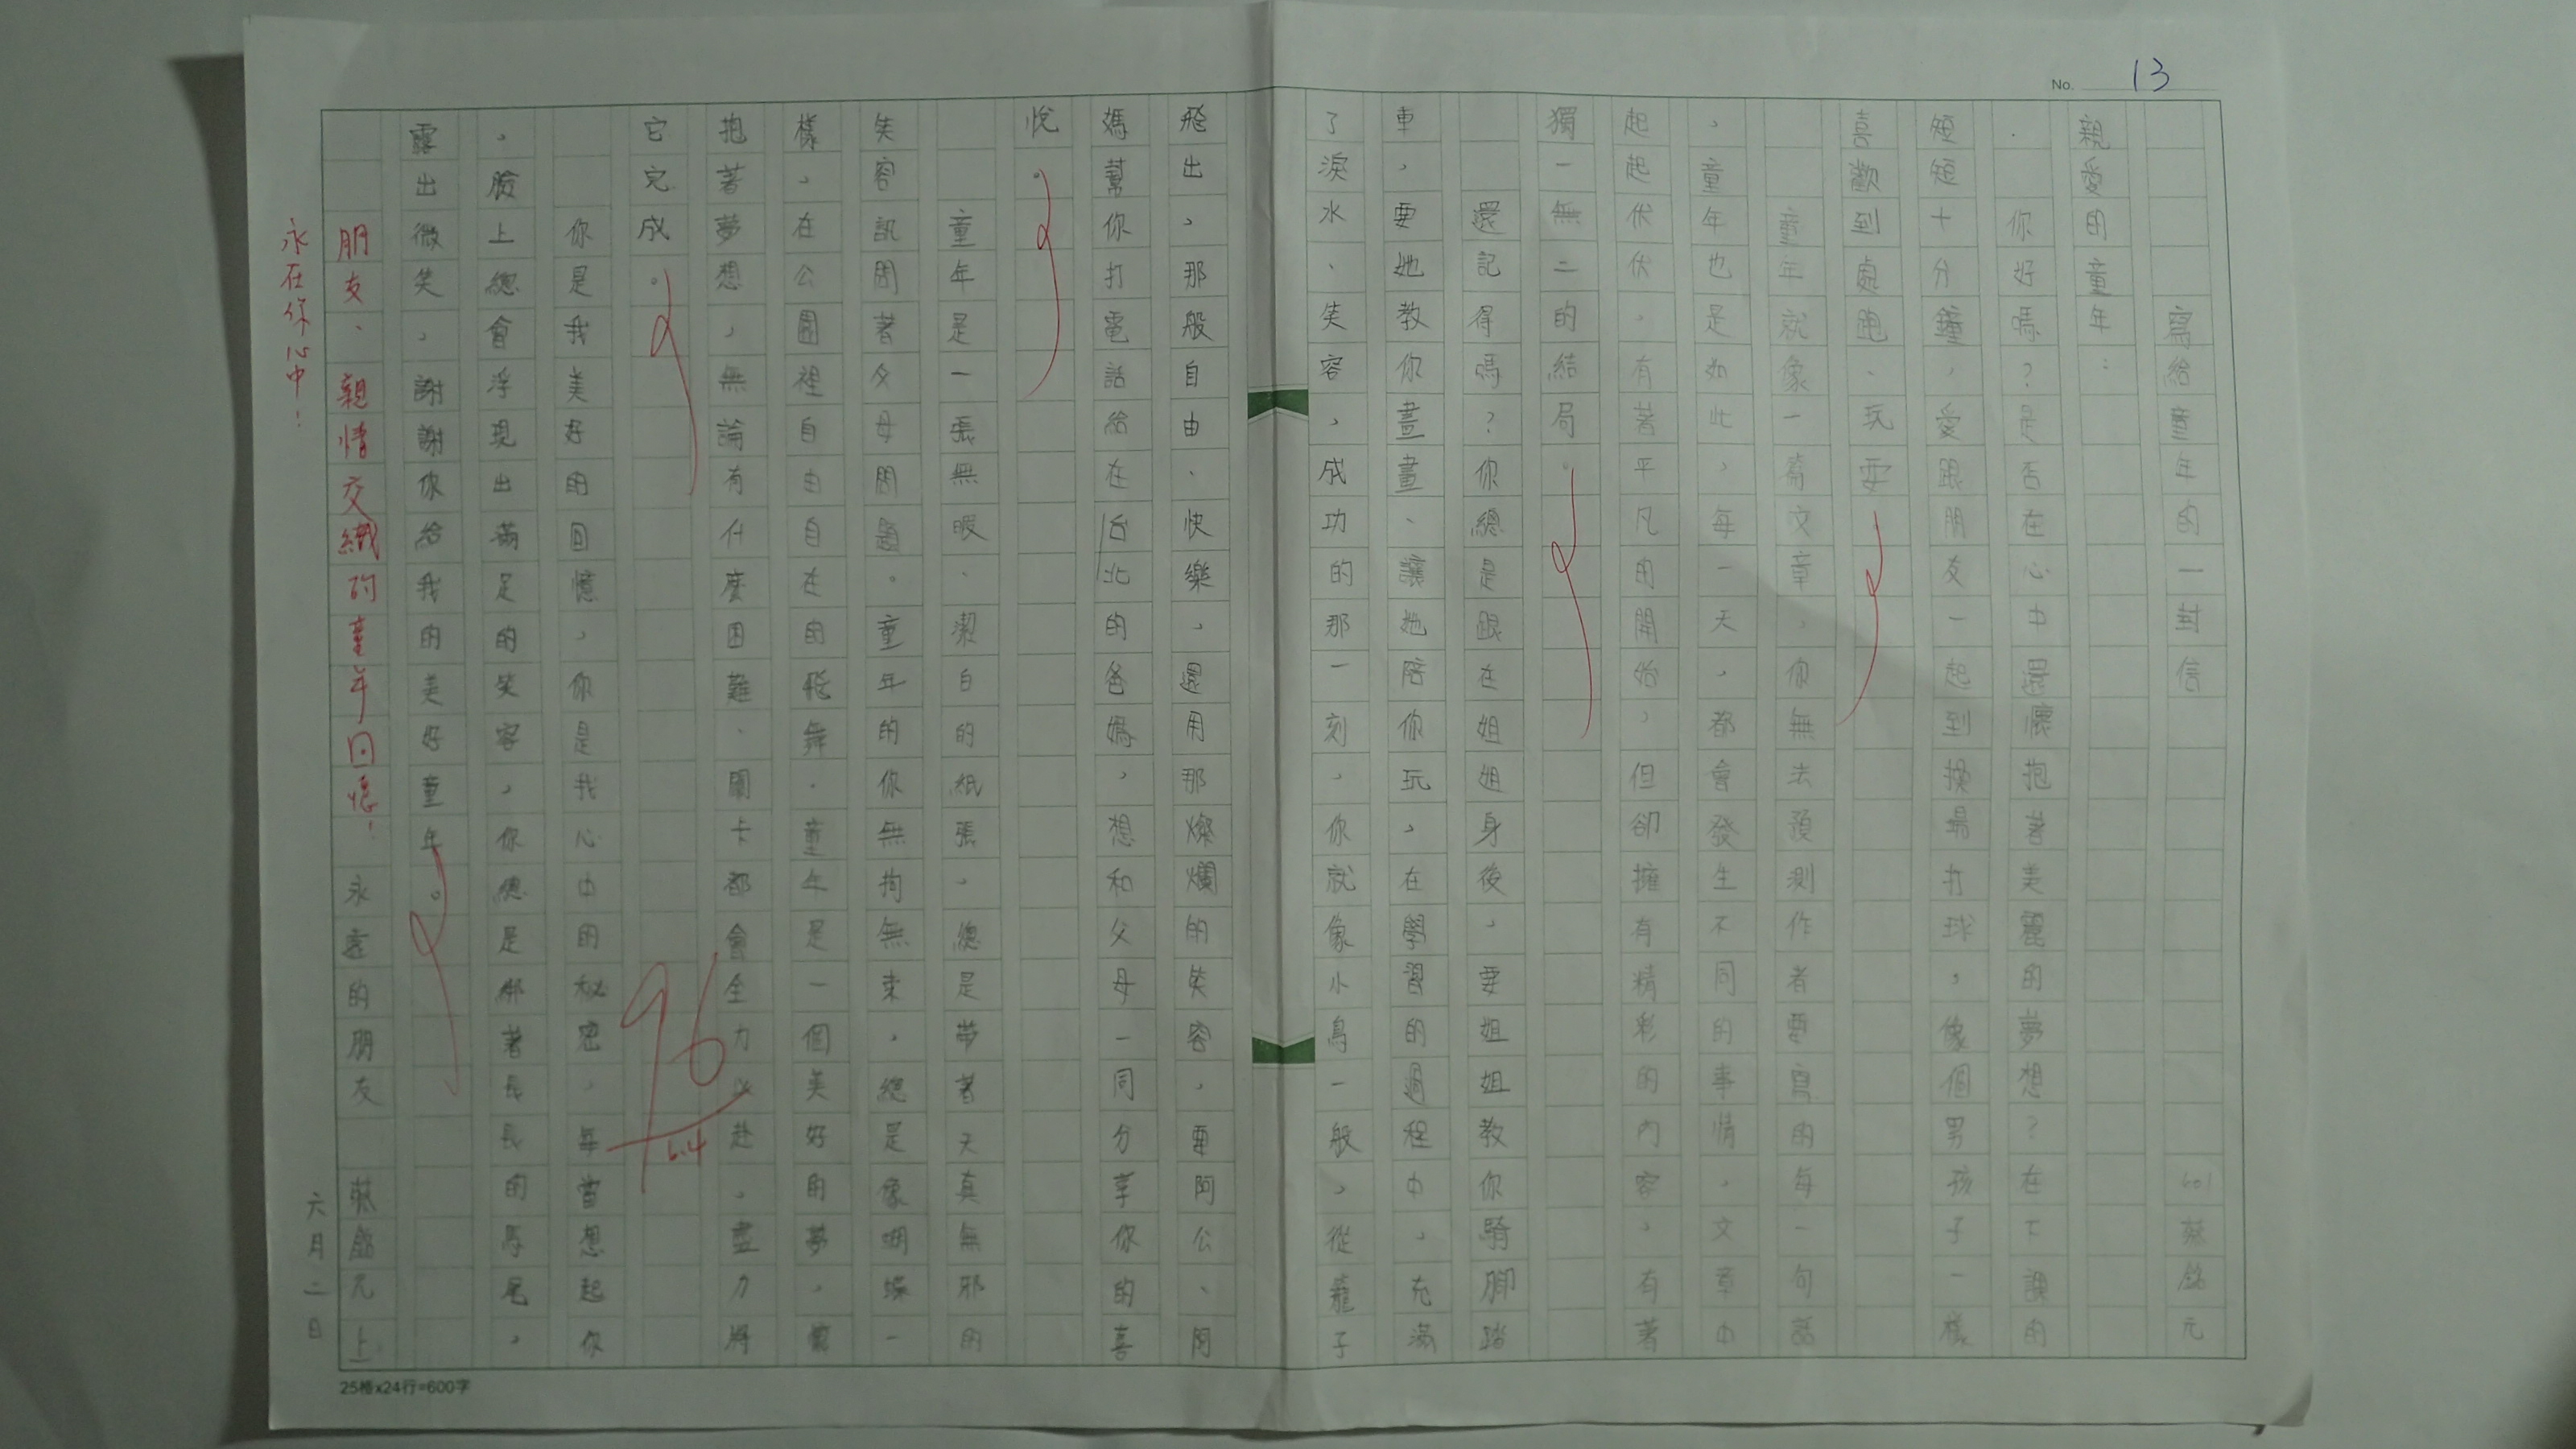 No. 13
寫給童年的一封信 601 蔡銘元
親愛的童年：
你好嗎？是否在心中還懷抱著美麗的夢想？在下課的
短短十分鐘，愛跟朋友一起到操場打球，像個男孩子一樣
喜歡到處跑、玩耍。
童年就像一篇文章，你無法預測作者要寫的每一句話
，童年也是如此，每一天，都會發生不同的事情，文章中
起起伏伏，有著平凡的開始，但卻擁有精彩的內容，有著
獨一無二的結局。
還記得嗎？你總是跟在姐姐身後，要姐姐教你騎腳踏
車，要她教你畫畫、讓她陪你玩，在學習的過程中，充滿
了淚水、笑容，成功的那一刻，你就像小鳥一般，從籠子
飛出，那般自由、快樂，還用那燦爛的笑容，要阿公、阿
媽幫你打電話給在台北的爸媽，想和父母一同分享你的喜
悅。
童年是一張無暇、潔白的紙張，總是帶著天真無邪的
笑容訊問著父母問題。童年的你無拘無束，總是像蝴蝶一
樣，在公園裡自由自在的飛舞．童年是一個美好的夢，懷
抱著夢想，無論有什麼困難、關卡都會全力以赴，盡力將
它完成。
你是我美好的回憶，你是我心中的秘密，每當想起你
，臉上總會浮現出滿足的笑容，你總是綁著長長的馬尾，
露出微笑，謝謝你給我的美好童年。
永遠的朋友 蔡銘元上
六月二日
96
6.4
朋友、親情交織的童年回憶！
永在你心中！
25格x24行=600字